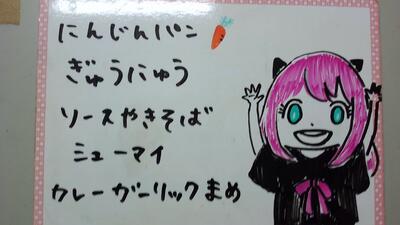 にんじんパン
ぎゅうにゅう
ソースやきそば
ミューマイ
カレーガーリックまめ